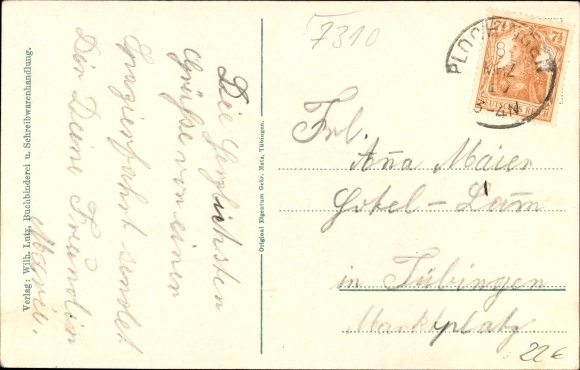 Verlag: Wilh. Lutz, Buchbinderei u. Schreibwarenhandlung.
Die herzlichsten
Grüße von einer
Spazierfahrt sendet
Dir Deine Freundin
Marie.
Original Eigentum Gebr. Metz, Tübingen.
7310
PLOCHINGEN
8
MRZ
3-4N
7½
DEUTSCHES REICH
Frl.
Anna Maier
Hotel-Lamm
in Tübingen
Marktplatz
22€